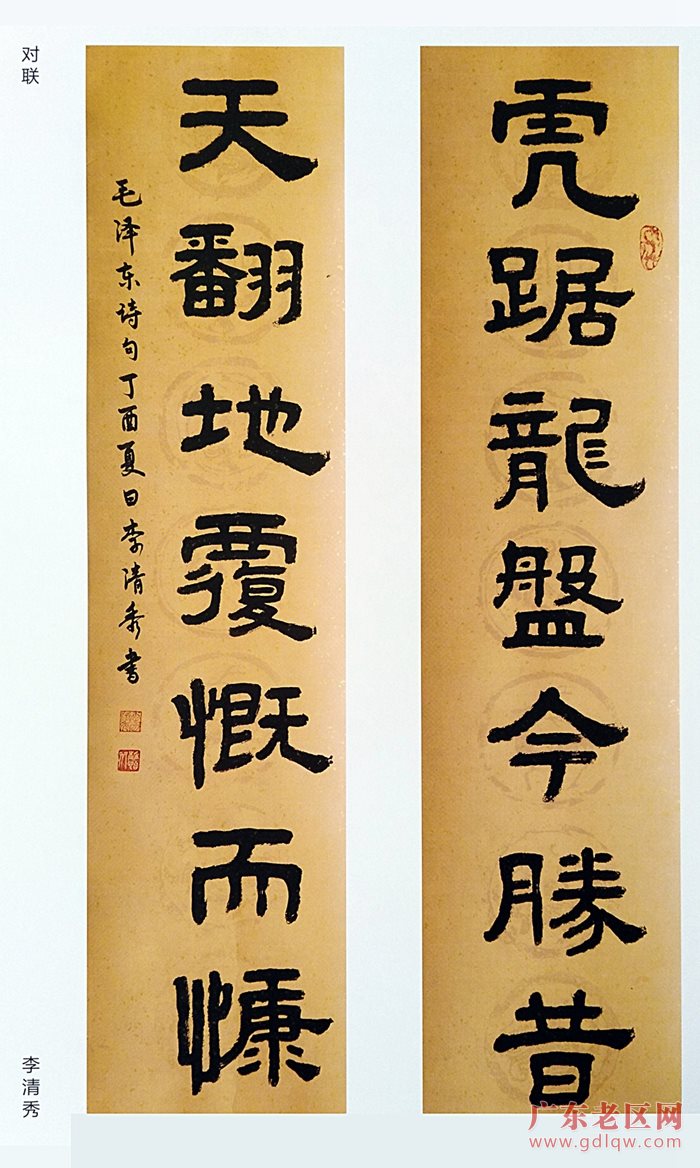 对联
虎踞龍盤今勝昔
天翻地覆慨而慷
毛泽东诗句丁酉夏日李清秀书
李清秀
广东老区网
www.gdlqw.com